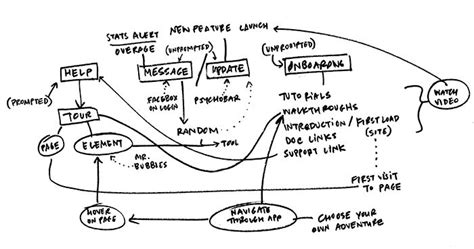 STATS ALERT
OVERAGE
NEW FEATURE LAUNCH
(UNPROMPTED)
(UNPROMPTED)
HELP
MESSAGE
/
UPDATE
ONBOARDING
(PROMPTED)
FACEBOX
ON LOGIN
PSYCHOBAR
TUTORIALS
WALKTHROUGHS
WATCH
VIDEO
TOUR
RANDOM
INTRODUCTION / FIRST LOAD
(SITE)
PAGE
ELEMENT
TOOL
DOC LINKS
SUPPORT LINK
MR.
BUBBLES
FIRST VISIT
TO PAGE
HOVER
ON PAGE
NAVIGATE
THROUGH APP
CHOOSE YOUR
OWN ADVENTURE